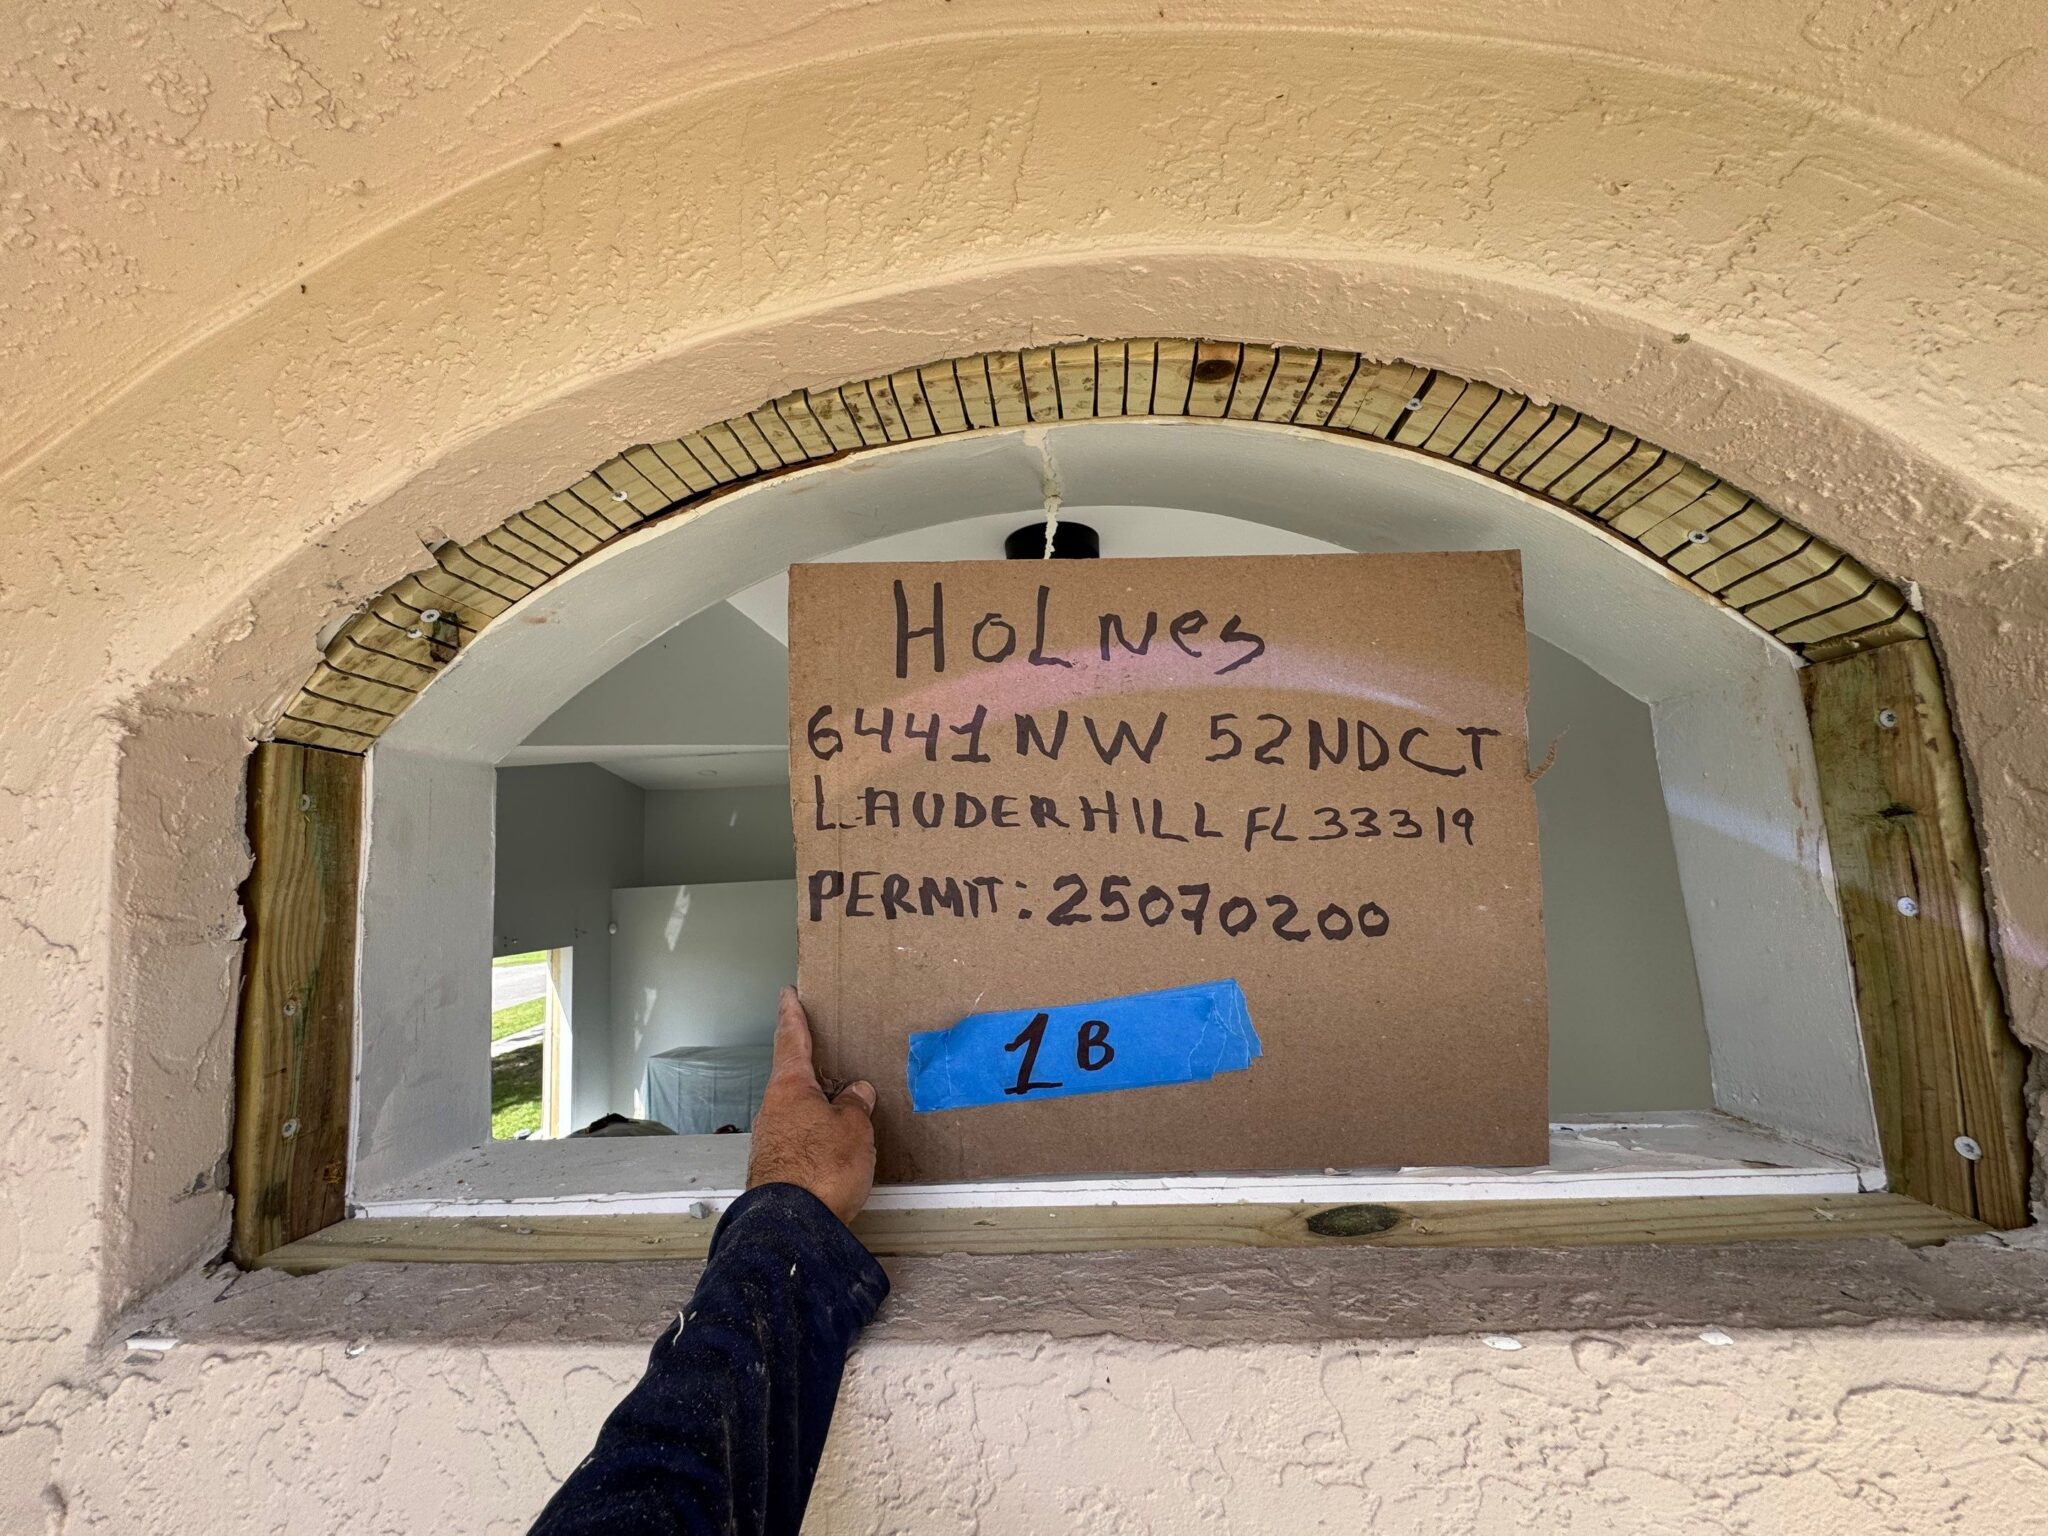 HOLNes
6441 NW 52NDCT
LAUDERHILL FL 33319
PERMIT: 25070200
1B